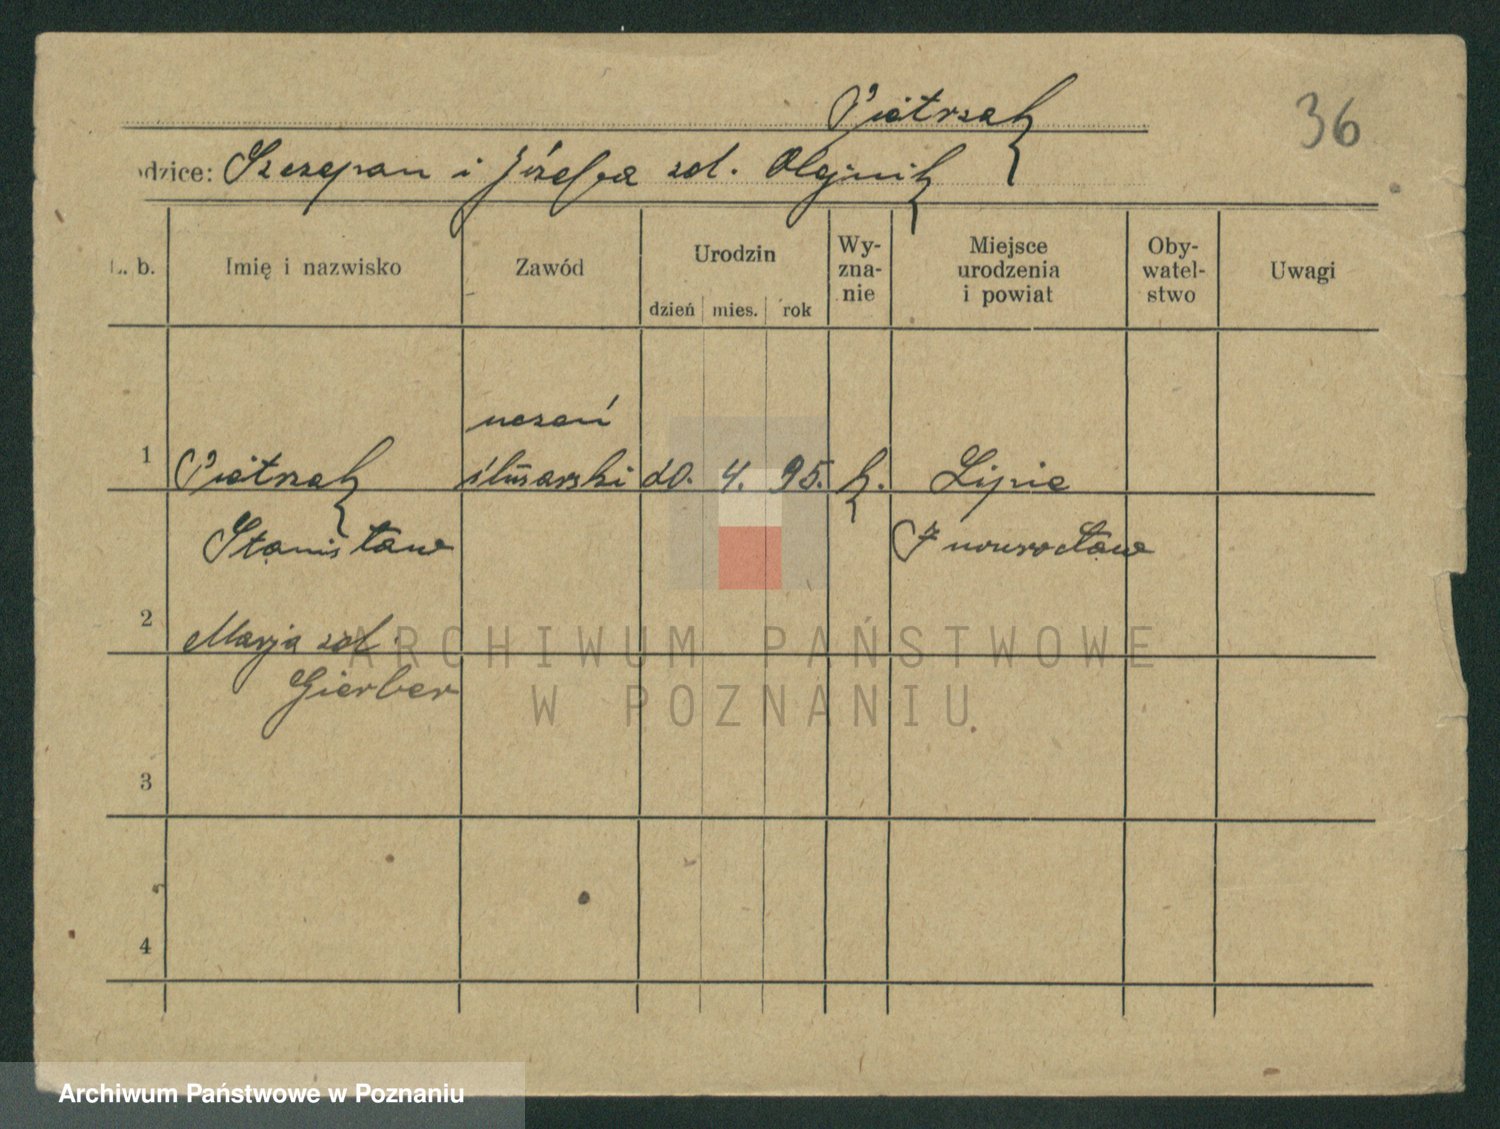 Pietrzak
36
odzice: Szczepan i Józefa zd. Olejnik
L. b.
Imię i nazwisko
Zawód
Urodzin
dzień mies. rok
Wy-
zna-
nie
Miejsce
urodzenia
i powiat
Oby-
watel-
stwo
Uwagi
uczeń
1 Pietrzak ślusarski 20. 4. 95. k. Lipie
Stanisław Inowrocław
2 Marja zd.
Gierber
3
4
ARCHIWUM PAŃSTWOWE
W POZNANIU
Archiwum Państwowe w Poznaniu